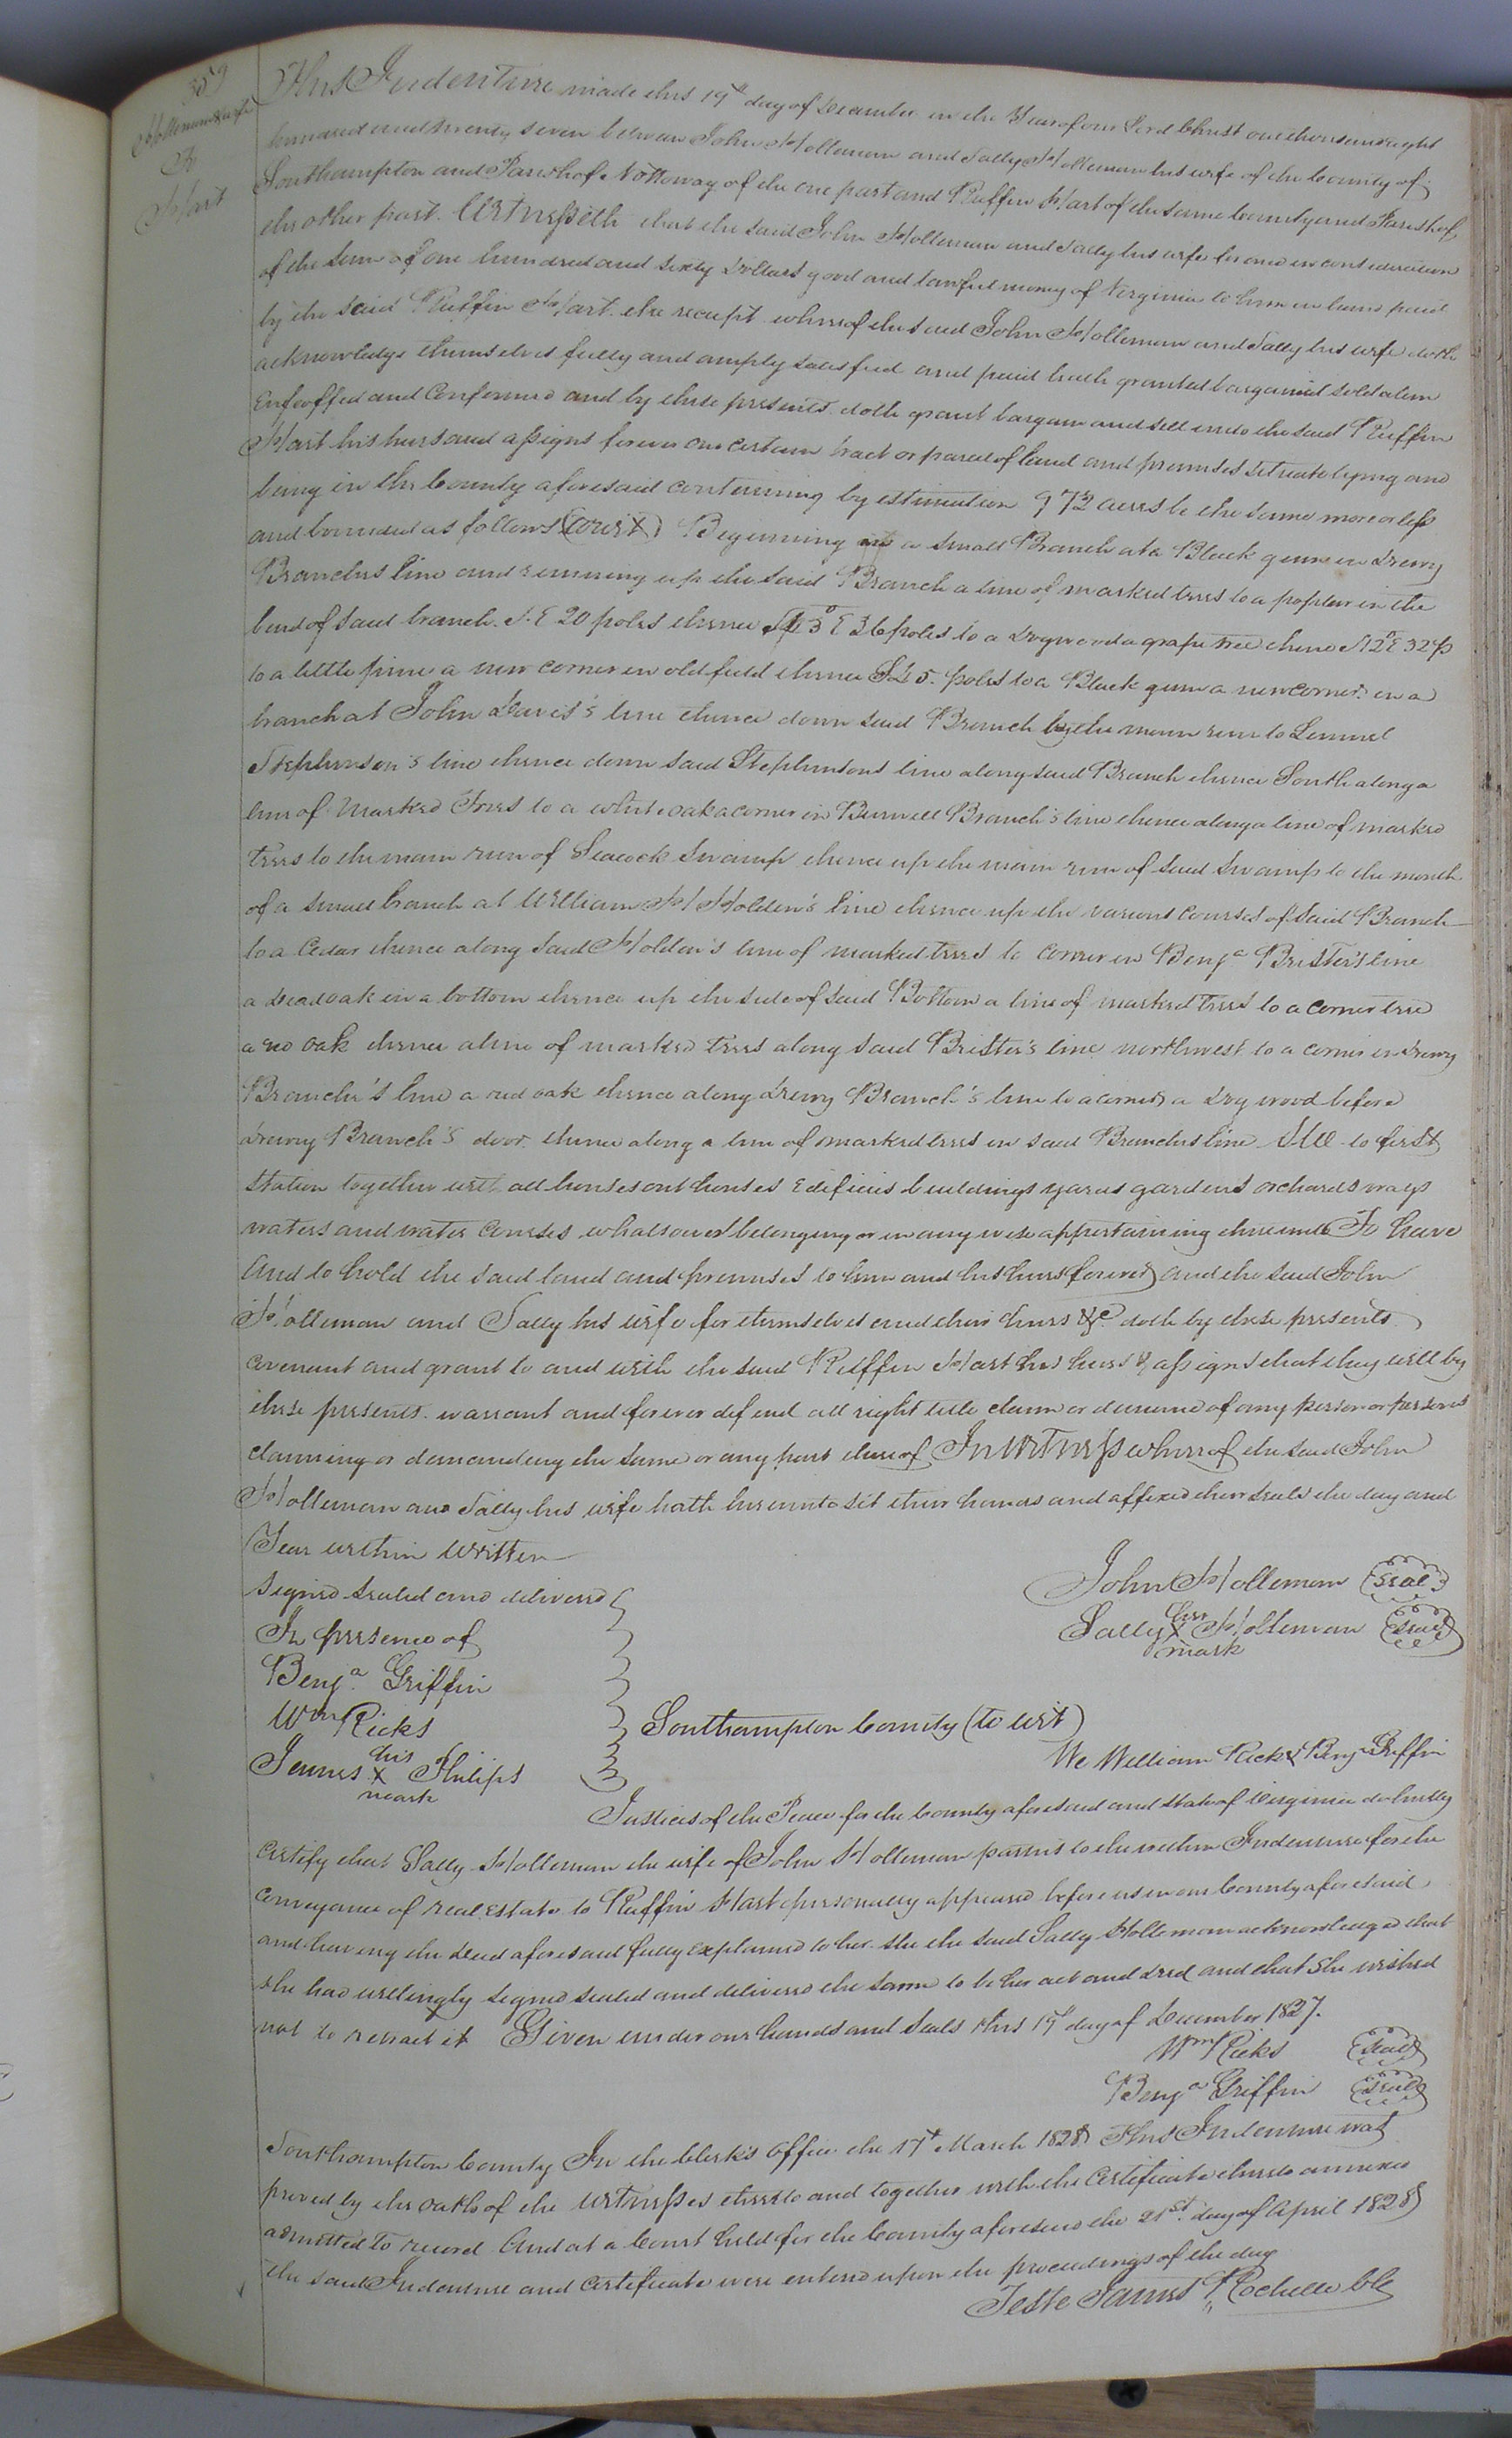 359
Holleman & wife
To
Hart
This Indenture made this 19th day of December in the Year of our Lord Christ one thousand eight
hundred and twenty seven between John Holleman and Sally Holleman his wife of the County of
Southampton and Parish of Nottoway of the one part and Ruffin Hart of the same County and Parish of
the other part. Witnesseth that the said John Holleman and Sally his wife for and in consideration
of the sum of one hundred and sixty Dollars good and lawful money of Virginia to him in hand paid
by the said Ruffin Hart the receipt whereof the said John Holleman and Sally his wife doth
acknowledge themselves fully and amply satisfied and paid hath granted bargained sold alien
Enfeoffed and Confirmed and by these presents doth grant bargain and sell unto the said Ruffin
Hart his heirs and assigns forever one certain tract or parcel of land and premises situate lying and
being in the County aforesaid containing by estimation 973 acres be the same more or less
and bounded as follows (towit) Beginning at a small Branch at a Black gum in Drewry
Branches line and running up the said Branch a line of marked trees to a poplar in the
bend of said branch. S. E 20 poles thence 3° E 36 poles to a Dogwood a grape tree thence N 2° E 32 p
to a little pine a new corner in old field thence 5. poles to a Black gum a new corner in a
branch at John Davis's line thence down said Branch by the main run to Lemuel
Stephenson's line thence down said Stephensons line along said Branch thence South along a
line of Marked Trees to a white oak a corner in Burwell Branch's line thence along a line of marked
trees to the main run of Seacock Swamp thence up the main run of said Swamp to the mouth
of a small branch at William H Holden's line thence up the various courses of said Branch
to a Cedar thence along said Holden's line of marked trees to corner in Benja Brister's line
a dead oak in a bottom thence up the side of said Bottom a line of marked trees to a corner tree
a red oak thence a line of marked trees along said Brister's line northwest to a corner in Drewry
Branch's line a red oak thence along Drewry Branch's line to a corner a Dog wood before
Drewry Branch's door thence along a line of marked trees in said Branches line to first
Station together with all houses out houses Edifices buildings yards gardens orchards ways
waters and water courses whatsoever belonging or in any wise appertaining thereunto To have
And to hold the said land and premises to him and his heirs forever and the said John
Holleman and Sally his wife for themselves and their heirs &c. doth by these presents
covenant and grant to and with the said Ruffin Hart his heirs & assigns that they will by
these presents warrant and forever defend all right title claim or demand of any person or persons
claiming or demanding the same or any part thereof In Witness whereof the said John
Holleman and Sally his wife hath hereunto set their hands and affixed their seals the day and
Year within Written
Signed sealed and delivered
In presence of
Benja. Griffin
Wm Ricks
James his X mark Philips
John Holleman (seal)
Sally her X mark Holleman (seal)
Southampton County (to wit)
We William Ricks & Benja Griffin
Justices of the Peace for the County aforesaid and State of Virginia do hereby
certify that Sally Holleman the wife of John Holleman parties to the within Indenture for the
conveyance of real estate to Ruffin Hart personally appeared before us in our County aforesaid
and having the Deed aforesaid fully explained to her she the said Sally Holleman acknowledged that
she had willingly signed sealed and delivered the same to be her act and deed and that she wished
not to retract it Given under our hands and seals this 19th day of December 1827.
Wm Ricks (seal)
Benja Griffin (seal)
Southampton County In the Clerk's Office the 17th March 1828 This Indenture was
proved by the oaths of the witnesses thereto and together with the Certificate thereto annexed
admitted to record And at a Court held for the County aforesaid the 21st. day of April 1828
the said Indenture and Certificate were entered upon the proceedings of the day
Teste James Rochelle Clk